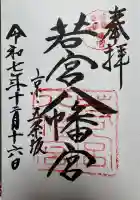 奉拝
若宮八幡宮
京・五条坂
令和七年十二月十六日